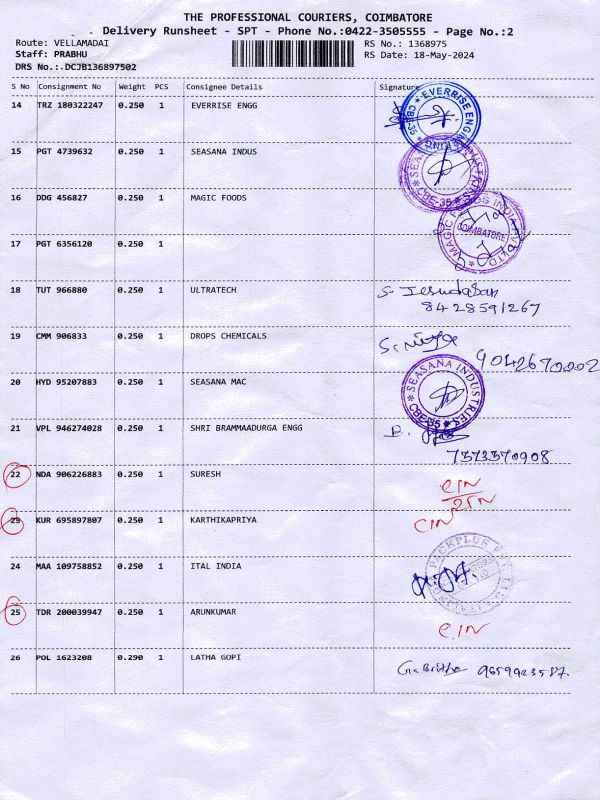 THE PROFESSIONAL COURIERS, COIMBATORE
Delivery Runsheet - SPT - Phone No.:0422-3505555 - Page No.:2
Route: VELLAMADAI RS No.: 1368975
Staff: PRABHU RS Date: 18-May-2024
DRS No.:.DCJB136897502
S No Consignment No Weight PCS Consignee Details Signature
14 TRZ 180322247 0.250 1 EVERRISE ENGG
EVERRISE ENGG
CBE-35
15 PGT 4739632 0.250 1 SEASANA INDUS
SEASANA INDUSTRIES
CBE-35
16 DDG 456827 0.250 1 MAGIC FOODS
COIMBATORE
17 PGT 6356120 0.250 1
18 TUT 966880 0.250 1 ULTRATECH
S. Jesudasan
8428591267
19 CMM 906833 0.250 1 DROPS CHEMICALS
9042670002
20 HYD 95207883 0.250 1 SEASANA MAC
SEASANA INDUSTRIES
CBE-35
21 VPL 946274028 0.250 1 SHRI BRAMMAADURGA ENGG
7373370908
22 NDA 906226883 0.250 1 SURESH
23 KUR 695897807 0.250 1 KARTHIKAPRIYA
CIN
24 MAA 109758852 0.250 1 ITAL INDIA
PACKPLUS PVT. LTD
25 TDR 200039947 0.250 1 ARUNKUMAR
26 POL 1623208 0.290 1 LATHA GOPI